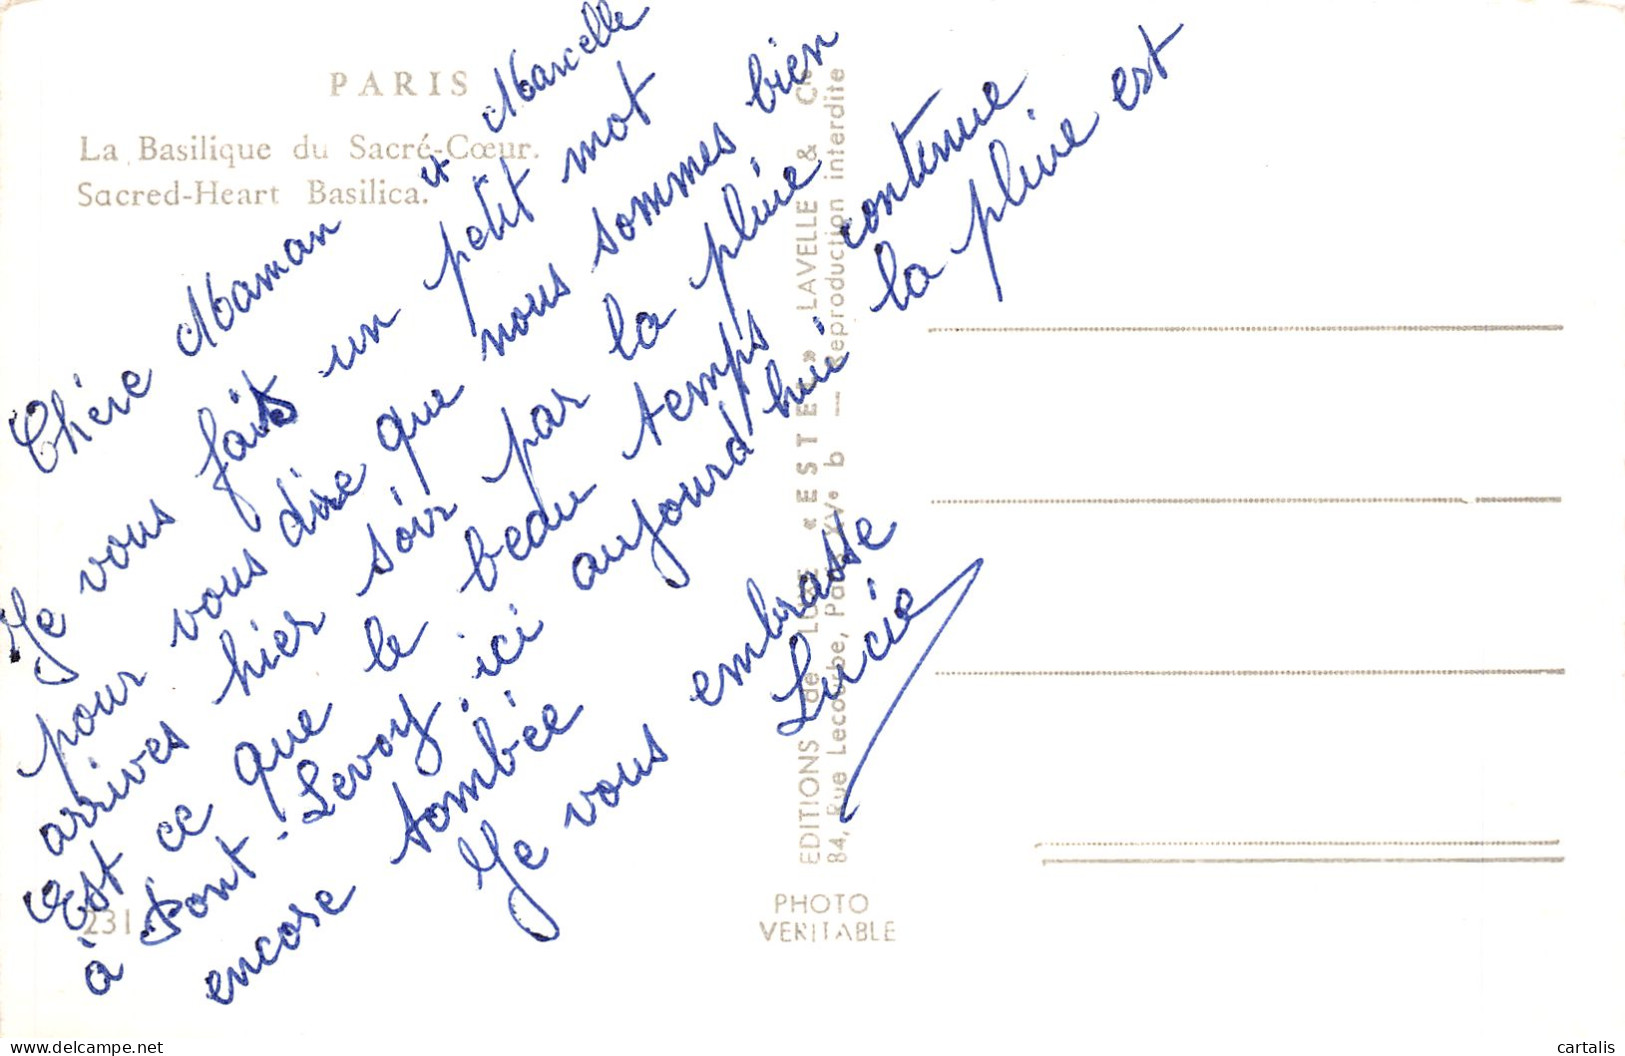 PARIS
La Basilique du Sacré-Cœur.
Sacred-Heart Basilica.
Chère Maman et Marcelle
Je vous faits un petit mot
pour vous dire que nous sommes bien
arrives hier soir par la pluie
Est ce que le beau temps contenue
à Pont-Levoy. ici aujourd'hui la pluie est
encore tombée
Je vous embrasse
Lucie
231
EDITIONS de LUXE « ESTEL » LAVELLE & Cie
84, Rue Lecourbe, Paris XVe b — Reproduction interdite
PHOTO
VERITABLE
cartalis
delcampe.net